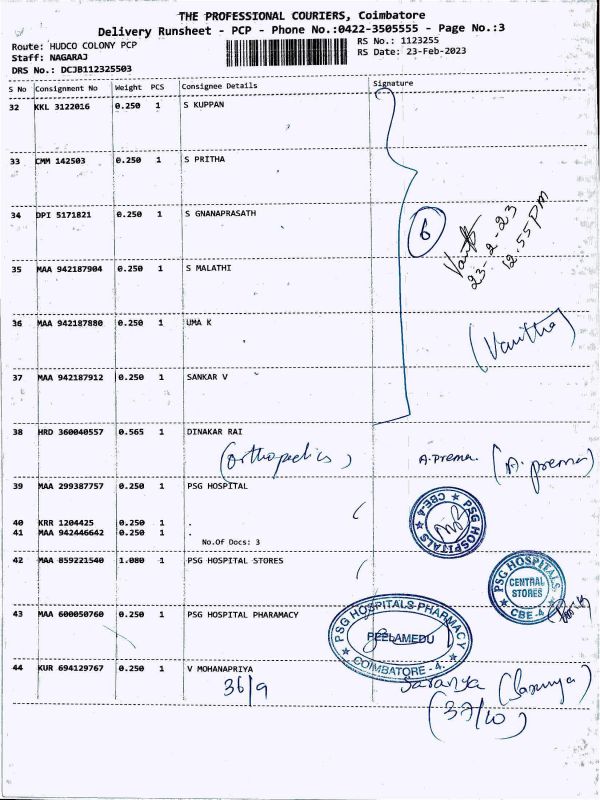 THE PROFESSIONAL COURIERS, Coimbatore
Delivery Runsheet - PCP - Phone No.:0422-3505555 - Page No.:3
Route: HUDCO COLONY PCP
RS No.: 1123255
Staff: NAGARAJ
RS Date: 23-Feb-2023
DRS No.: DCJB112325503
S No Consignment No Weight PCS Consignee Details Signature
32 KKL 3122016 0.250 1 S KUPPAN
33 CMM 142503 0.250 1 S PRITHA
34 DPI 5171821 0.250 1 S GNANAPRASATH
6
23-2-23
12.55 PM
35 MAA 942187904 0.250 1 S MALATHI
36 MAA 942187880 0.250 1 UMA K
(Vanitha)
37 MAA 942187912 0.250 1 SANKAR V
38 HRD 360040557 0.565 1 DINAKAR RAI
(Orthopedics) A.Prema. (A. prema)
39 MAA 299387757 0.250 1 PSG HOSPITAL
PSG HOSPITALS CBE-4
40 KRR 1204425 0.250 1 .
41 MAA 942446642 0.250 1 .
No.Of Docs: 3
42 MAA 859221540 1.080 1 PSG HOSPITAL STORES
PSG HOSPITALS
CENTRAL
STORES
CBE-4
43 MAA 600050760 0.250 1 PSG HOSPITAL PHARAMACY
PSG HOSPITALS PHARMACY
PEELAMEDU
COIMBATORE - 4.
44 KUR 694129767 0.250 1 V MOHANAPRIYA
36/9 Saranya (Saranya)
(37/10)